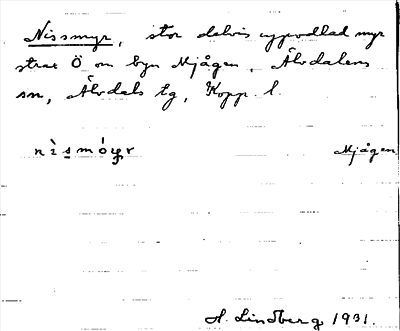 Nissmyr, stor delvis uppodlad myr
strax Ö om byn Mjågen, Älvdalens
sn, Älvdals tg, Kopp. l.
Mjågen
H. Lindberg 1931.